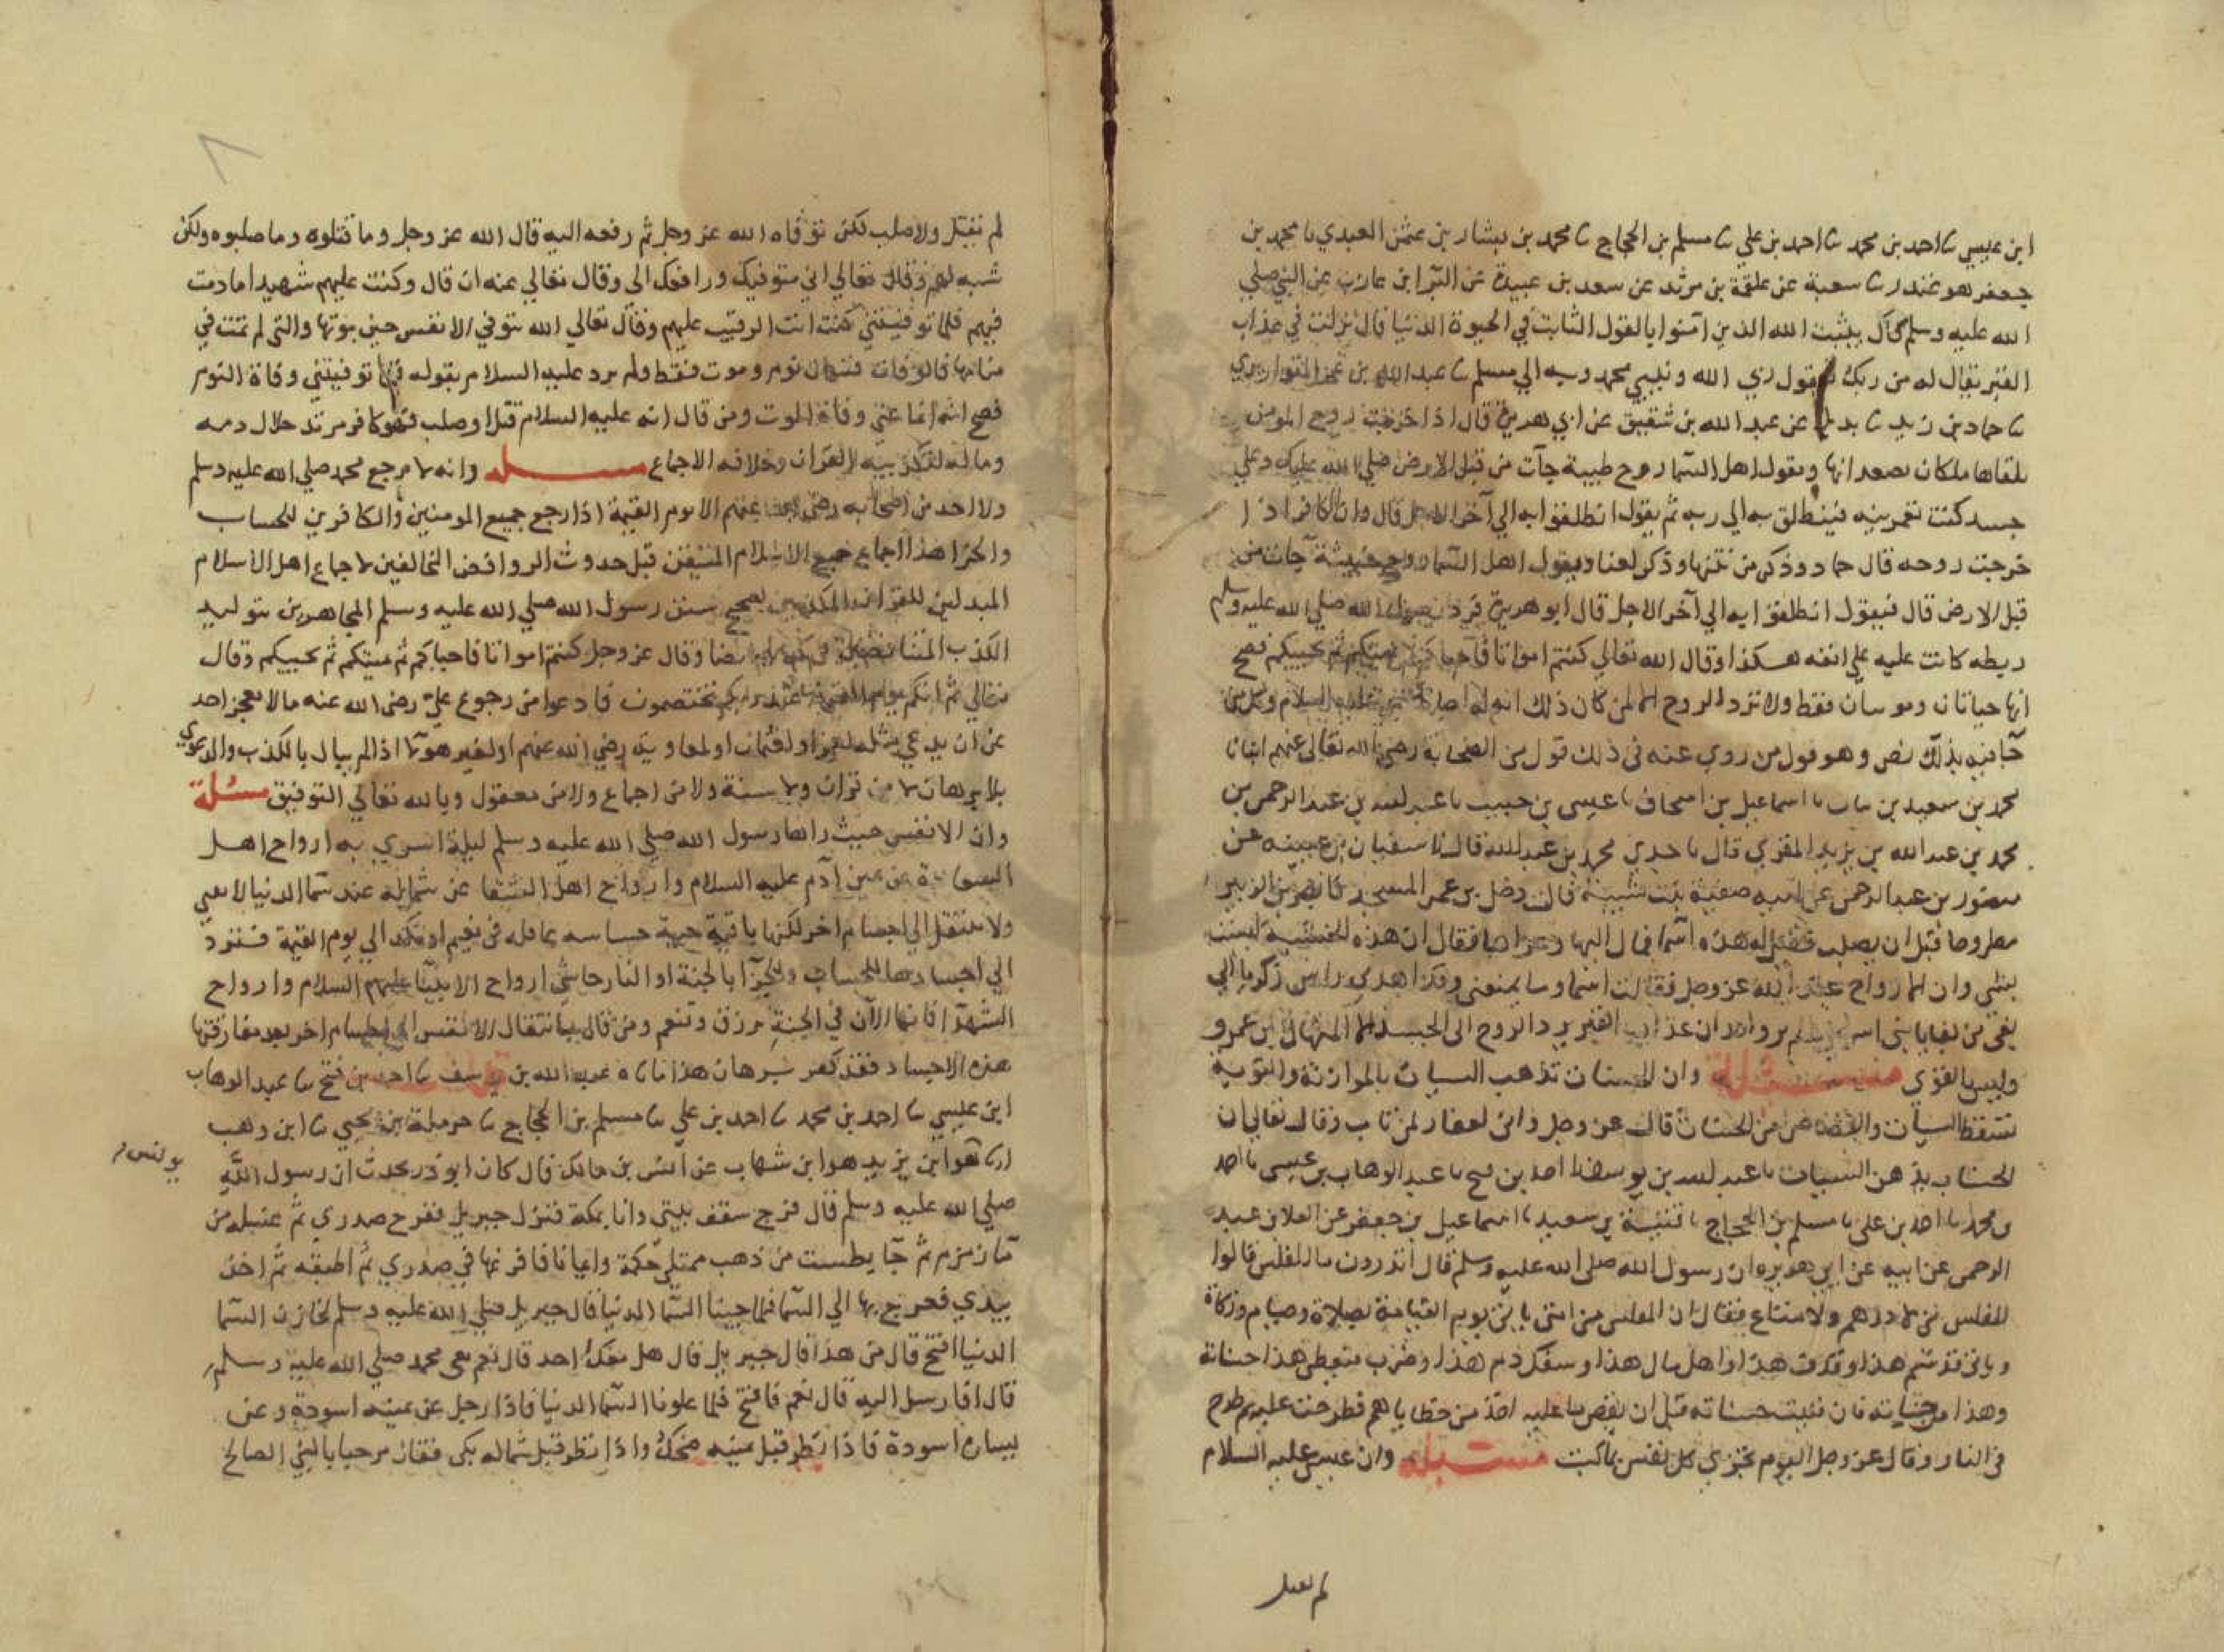 ابن عيسى نا احمد بن محمد نا احمد بن علي نا مسلم بن الحجاج نا محمد بن بشار بن عثمن العبدي نا محمد بن
جعفر هو غندر نا شعبة عن علقمة بن مرثد عن سعد بن عبيدة عن البرا ابن عازب عن النبي صلي
الله عليه وسلم قال يثبت الله الذين آمنوا بالقول الثابت في الحيوة الدنيا قال نزلت في عذاب
القبر يقال له من ربك فيقول ربي الله ونبيي محمد وبه الي مسلم نا عبد الله بن عمر القواريري
نا حماد بن زيد نا بديل عن عبد الله بن شقيق عن ابي هريرة قال اذا خرجت روح المومن
تلقاها ملكان يصعدانها ويقول اهل السما روح طيبة جآت من قبل الارض صلي الله عليك وعلي
جسد كنت تعمرينه فينطلق به الي ربه ثم يقول انطلقوا به الي آخر الاجل قال وان الكافر اذا
خرجت روحه قال حماد وذكر من نتنها وذكر لعنا ويقول اهل السما روح خبيثة جآت من
قبل الارض قال فيقول انطلقوا به الي آخر الاجل قال ابو هريرة فرد رسول الله صلي الله عليه وسلم
ريطه كانت عليه علي انفه هكذا وقال الله تعالي كنتم امواتا فاحياكم ثم يميتكم ثم يحييكم فصح
انها حياتان وموتتان فقط ولا ترد الروح الا لمن كان ذلك اية له عليه السلام وكل من
جآ فيه بذلك نص وهو قول من روي عنه في ذلك قول من الصحابة رضي الله تعالي عنهم
محمد بن سعيد بن نبات نا اسماعيل بن اسحاق نا عيسى بن حبيب نا عبد الله بن عبد الرحمن بن
محمد بن عبد الله بن يزيد المقري قال نا جدي محمد بن عبد الله قال نا سفيان بن عيينه عن
منصور بن عبد الرحمن عن امه صفية بنت شيبة قالت دخل بن عمر المسجد فابصر بن الزبير
مطروحا قبل ان يصلب فقيل له هذه اسما فمال اليها وعزاها فقال ان هذه الجثث ليست
بشي وان الارواح عند الله عز وجل فقالت اسما وما يمنعني وقد اهدي راس زكريا الي
بغي من بغايا بني اسرائيل ولم يرو احد ان عذاب القبر برد الروح الى الجسد الا المنهال بن عمرو
وليس بالقوي مسئلة وان الحسنات تذهب السيات بالموازنة والتوبة
تسقط السيآت والقصاص من الحسنات قال عز وجل واني لغفار لمن تاب وقال تعالي ان
الحسنات يذهبن السيئات نا عبد الله بن يوسف نا احمد بن فتح نا عبد الوهاب بن عيسى نا احمد
بن محمد نا احمد بن علي نا مسلم بن الحجاج نا قتيبة بن سعيد نا اسماعيل بن جعفر عن العلا بن عبد
الرحمن عن ابيه عن ابي هريره ان رسول الله صلى الله عليه وسلم قال اتدرون ما المفلس قالوا
المفلس من لا درهم ولا متاع فقال ان المفلس من امتي ياتي يوم القيامة بصلاة وصيام وزكاة
وياتي قد شتم هذا وقذف هذا واكل مال هذا وسفك دم هذا وضرب فيعطى هذا حسناته
وهذا من حسناته فان فنيت حسناته قبل ان يقضى ما عليه اخذ من خطاياهم فطرحت عليه ثم طرح
في النار وقال عز وجل اليوم تجزى كل نفس بما كسبت مسئله وان عيسى عليه السلام
لم يقتل
لم يقتل ولا صلب لكن توفاه الله عز وجل ثم رفعه اليه قال الله عز وجل وما قتلوه وما صلبوه ولكن
شبه لهم وقال تعالي اني متوفيك ورافعك الي وقال تعالي عنه انه قال وكنت عليهم شهيدا ما دمت
فيهم فلما توفيتني كنت انت الرقيب عليهم وقال تعالي الله يتوفي الانفس حين موتها والتي لم تمت في
منامها فالوفاة قسمان نوم وموت فقط ولم يرد عليه السلام بقوله فلما توفيتني وفاة النوم
فصح انه انما عني وفاة الموت ومن قال انه عليه السلام قتل او صلب فهو كافر مرتد حلال دمه
وماله لتكذيبه القران وخلافه الاجماع مسئله وانه لا يرجع محمد صلي الله عليه وسلم
ولا احد من اصحابه رضي الله عنهم الا يوم القيمة اذا رجع جميع المومنين والكافرين للحساب
والجزا هذا اجماع جميع الاسلام المتيقن قبل حدوث الروافض المخالفين لاجماع اهل الاسلام
المبدلين للقران المكذبين بصحيح سنن رسول الله صلي الله عليه وسلم المجاهرين بتوليد
الكذب المتناقضين في كذبهم ايضا وقال عز وجل كنتم امواتا فاحياكم ثم يميتكم ثم يحييكم وقال
تعالي ثم انكم يوم القيمة عند ربكم تختصمون فادعوا من رجوع علي رضي الله عنه ما لا يعجز احد
عن ان يدعي مثله لعمر او لعثمان او لمعاوية رضي الله عنهم او لغير هولا اذا لم يبال بالكذب والدعوي
بلا برهان لا من قران ولا سنة ولا من اجماع ولا من معقول وبالله تعالي التوفيق مسئلة
وان الانفس حيث راها رسول الله صلي الله عليه وسلم ليلة اسري به ارواح اهل
السعادة عن يمين آدم عليه السلام وارواح اهل الشقا عن شماله عند سما الدنيا لا تفني
ولا تنتقل الي اجسام اخر لكنها باقية حية حساسه عاقله في نعيم او نكد الي يوم القيمة فترد
الي اجسادها للحساب وللجزآ بالجنة او النار حاشي ارواح الانبيا عليهم السلام وارواح
الشهدآ فانها الآن في الجنة ترزق وتنعم ومن قال بانتقال الانفس الي اجسام اخر بعد مفارقتها
هذه الاجساد فقد كفر برهان هذا ما ناه عبد الله بن يوسف نا احمد بن فتح نا عبد الوهاب
ابن عيسي نا احمد بن محمد نا احمد بن علي نا مسلم بن الحجاج نا حرملة بن يحيي نا ابن وهب
انا هو ابن يزيد هو ابن شهاب عن انس بن مالك قال كان ابو ذر يحدث ان رسول الله
يونس
صلي الله عليه وسلم قال فرج سقف بيتي وانا بمكة فنزل جبريل ففرج صدري ثم غسله من
مآ زمزم ثم جآ بطست من ذهب ممتلي حكمة وايمانا فافرغها في صدري ثم اطبقه ثم اخذ
بيدي فعرج بها الي السما فلما جينا السما الدنيا قال جبريل صلي الله عليه وسلم لخازن السما
الدنيا افتح قال من هذا قال جبريل قال هل معك احد قال نعم معي محمد صلي الله عليه وسلم
قال افارسل اليه قال نعم فافتح فلما علونا السما الدنيا فاذا رجل عن يمينه اسودة وعن
يساره اسودة فاذا نظر قبل يمينه ضحك واذا نظر قبل شماله بكى فقال مرحبا بالنبي الصالح